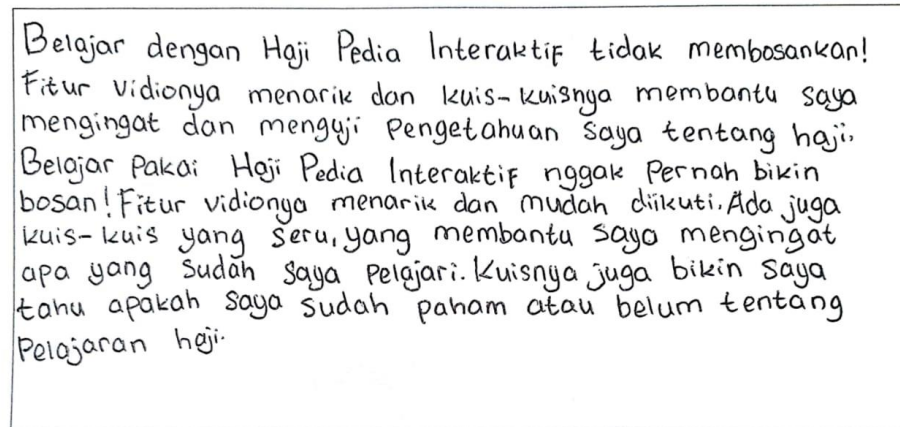 Belajar dengan Haji Pedia Interaktif tidak membosankan!
Fitur vidionya menarik dan kuis-kuisnya membantu saya
mengingat dan menguji pengetahuan saya tentang haji.
Belajar pakai Haji Pedia Interaktif nggak pernah bikin
bosan! Fitur vidionya menarik dan mudah diikuti. Ada juga
kuis-kuis yang seru, yang membantu saya mengingat
apa yang sudah saya pelajari. Kuisnya juga bikin saya
tahu apakah saya sudah paham atau belum tentang
pelajaran haji.